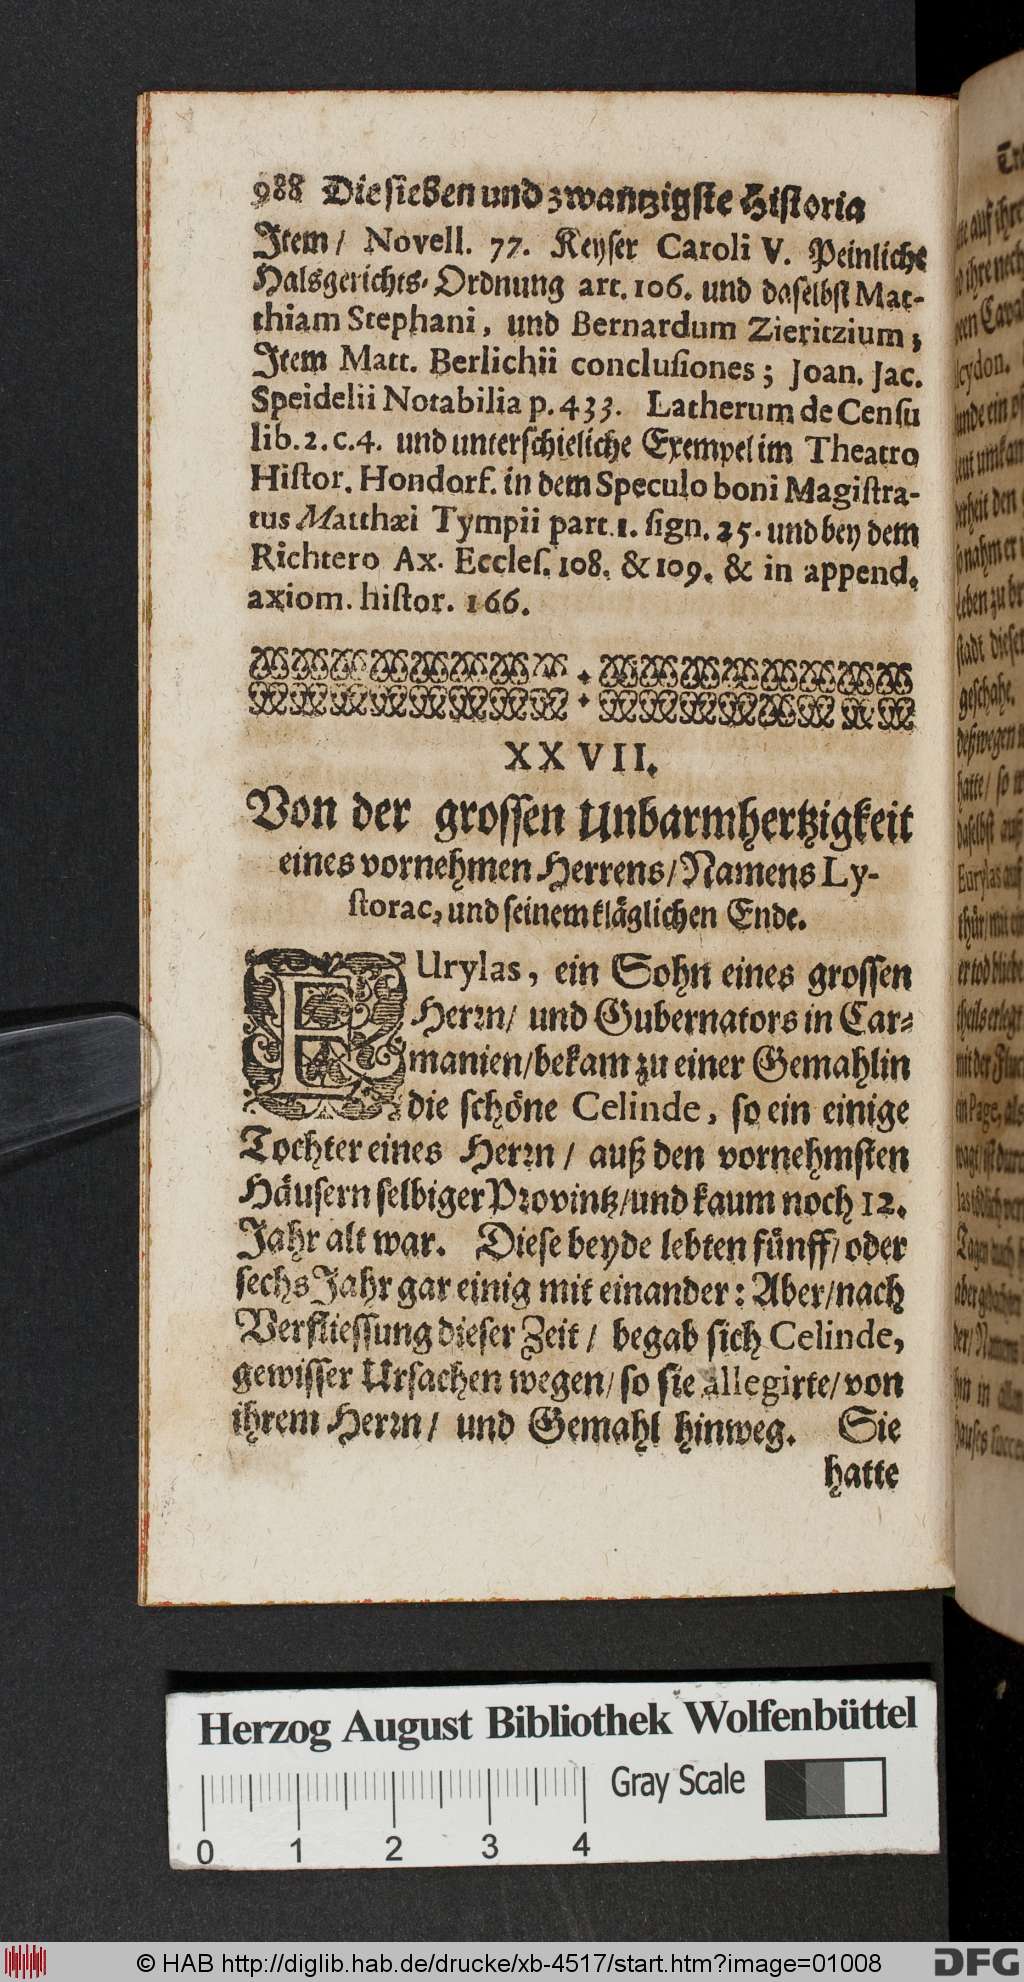 988 Die sieben und zwantzigste Historia
Item / Novell. 77. Keyser Caroli V. Peinliche
Halsgerichts-Ordnung art. 106. und daselbst Mat-
thiam Stephani, und Bernardum Zieritzium;
Item Matt. Berlichii conclusiones; Joan. Jac.
Speidelii Notabilia p. 433. Latherum de Censu
lib. 2. c. 4. und unterschieliche Exempel im Theatro
Histor. Hondorf. in dem Speculo boni Magistra-
tus Matthæi Tympii part. 1. sign. 25. und bey dem
Richtero Ax. Eccles. 108. & 109. & in append.
axiom. histor. 166.
XXVII.
Von der grossen Unbarmhertzigkeit
eines vornehmen Herrens / Namens Ly-
storac, und seinem kläglichen Ende.
EUrylas, ein Sohn eines grossen
Herrn / und Gubernators in Car-
manien / bekam zu einer Gemahlin
die schöne Celinde, so ein einige
Tochter eines Herrn / auß den vornehmsten
Häusern selbiger Provintz / und kaum noch 12.
Jahr alt war. Diese beyde lebten fünff / oder
sechs Jahr gar einig mit einander: Aber / nach
Verfliessung dieser Zeit / begab sich Celinde,
gewisser Ursachen wegen / so sie allegirte / von
ihrem Herrn / und Gemahl hinweg. Sie
hatte
Herzog August Bibliothek Wolfenbüttel
Gray Scale
0 1 2 3 4
© HAB http://diglib.hab.de/drucke/xb-4517/start.htm?image=01008
DFG